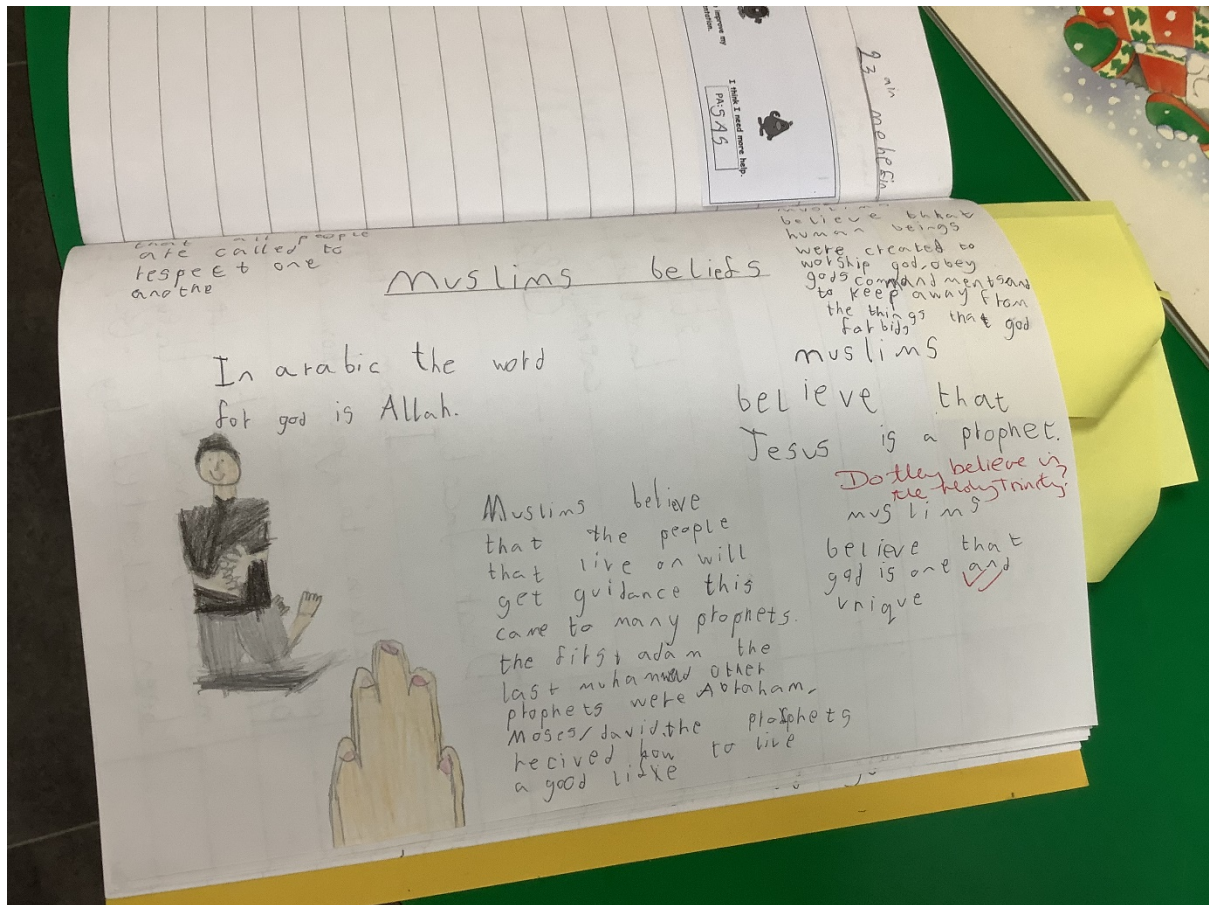 improve my
I think I need more help.
PA: SAS
that all people
are called to
respect one
anothe
muslims beliefs
believe bhhat
human beings
were created to
worship god, obey
gods commandments and
to keep away from
the things that god
forbids
In arabic the word
for god is Allah.
muslims
believe that
Jesus is a prophet.
Do they believe in
the Holy Trinity?
muslims
believe that
god is one and
unique
Muslims believe
that the people
that live on will
get guidance this
came to many prophets.
the first adam the
last muhammad other
prophets were Abraham,
Moses/david.the prophets
recived how to live
a good lifxe